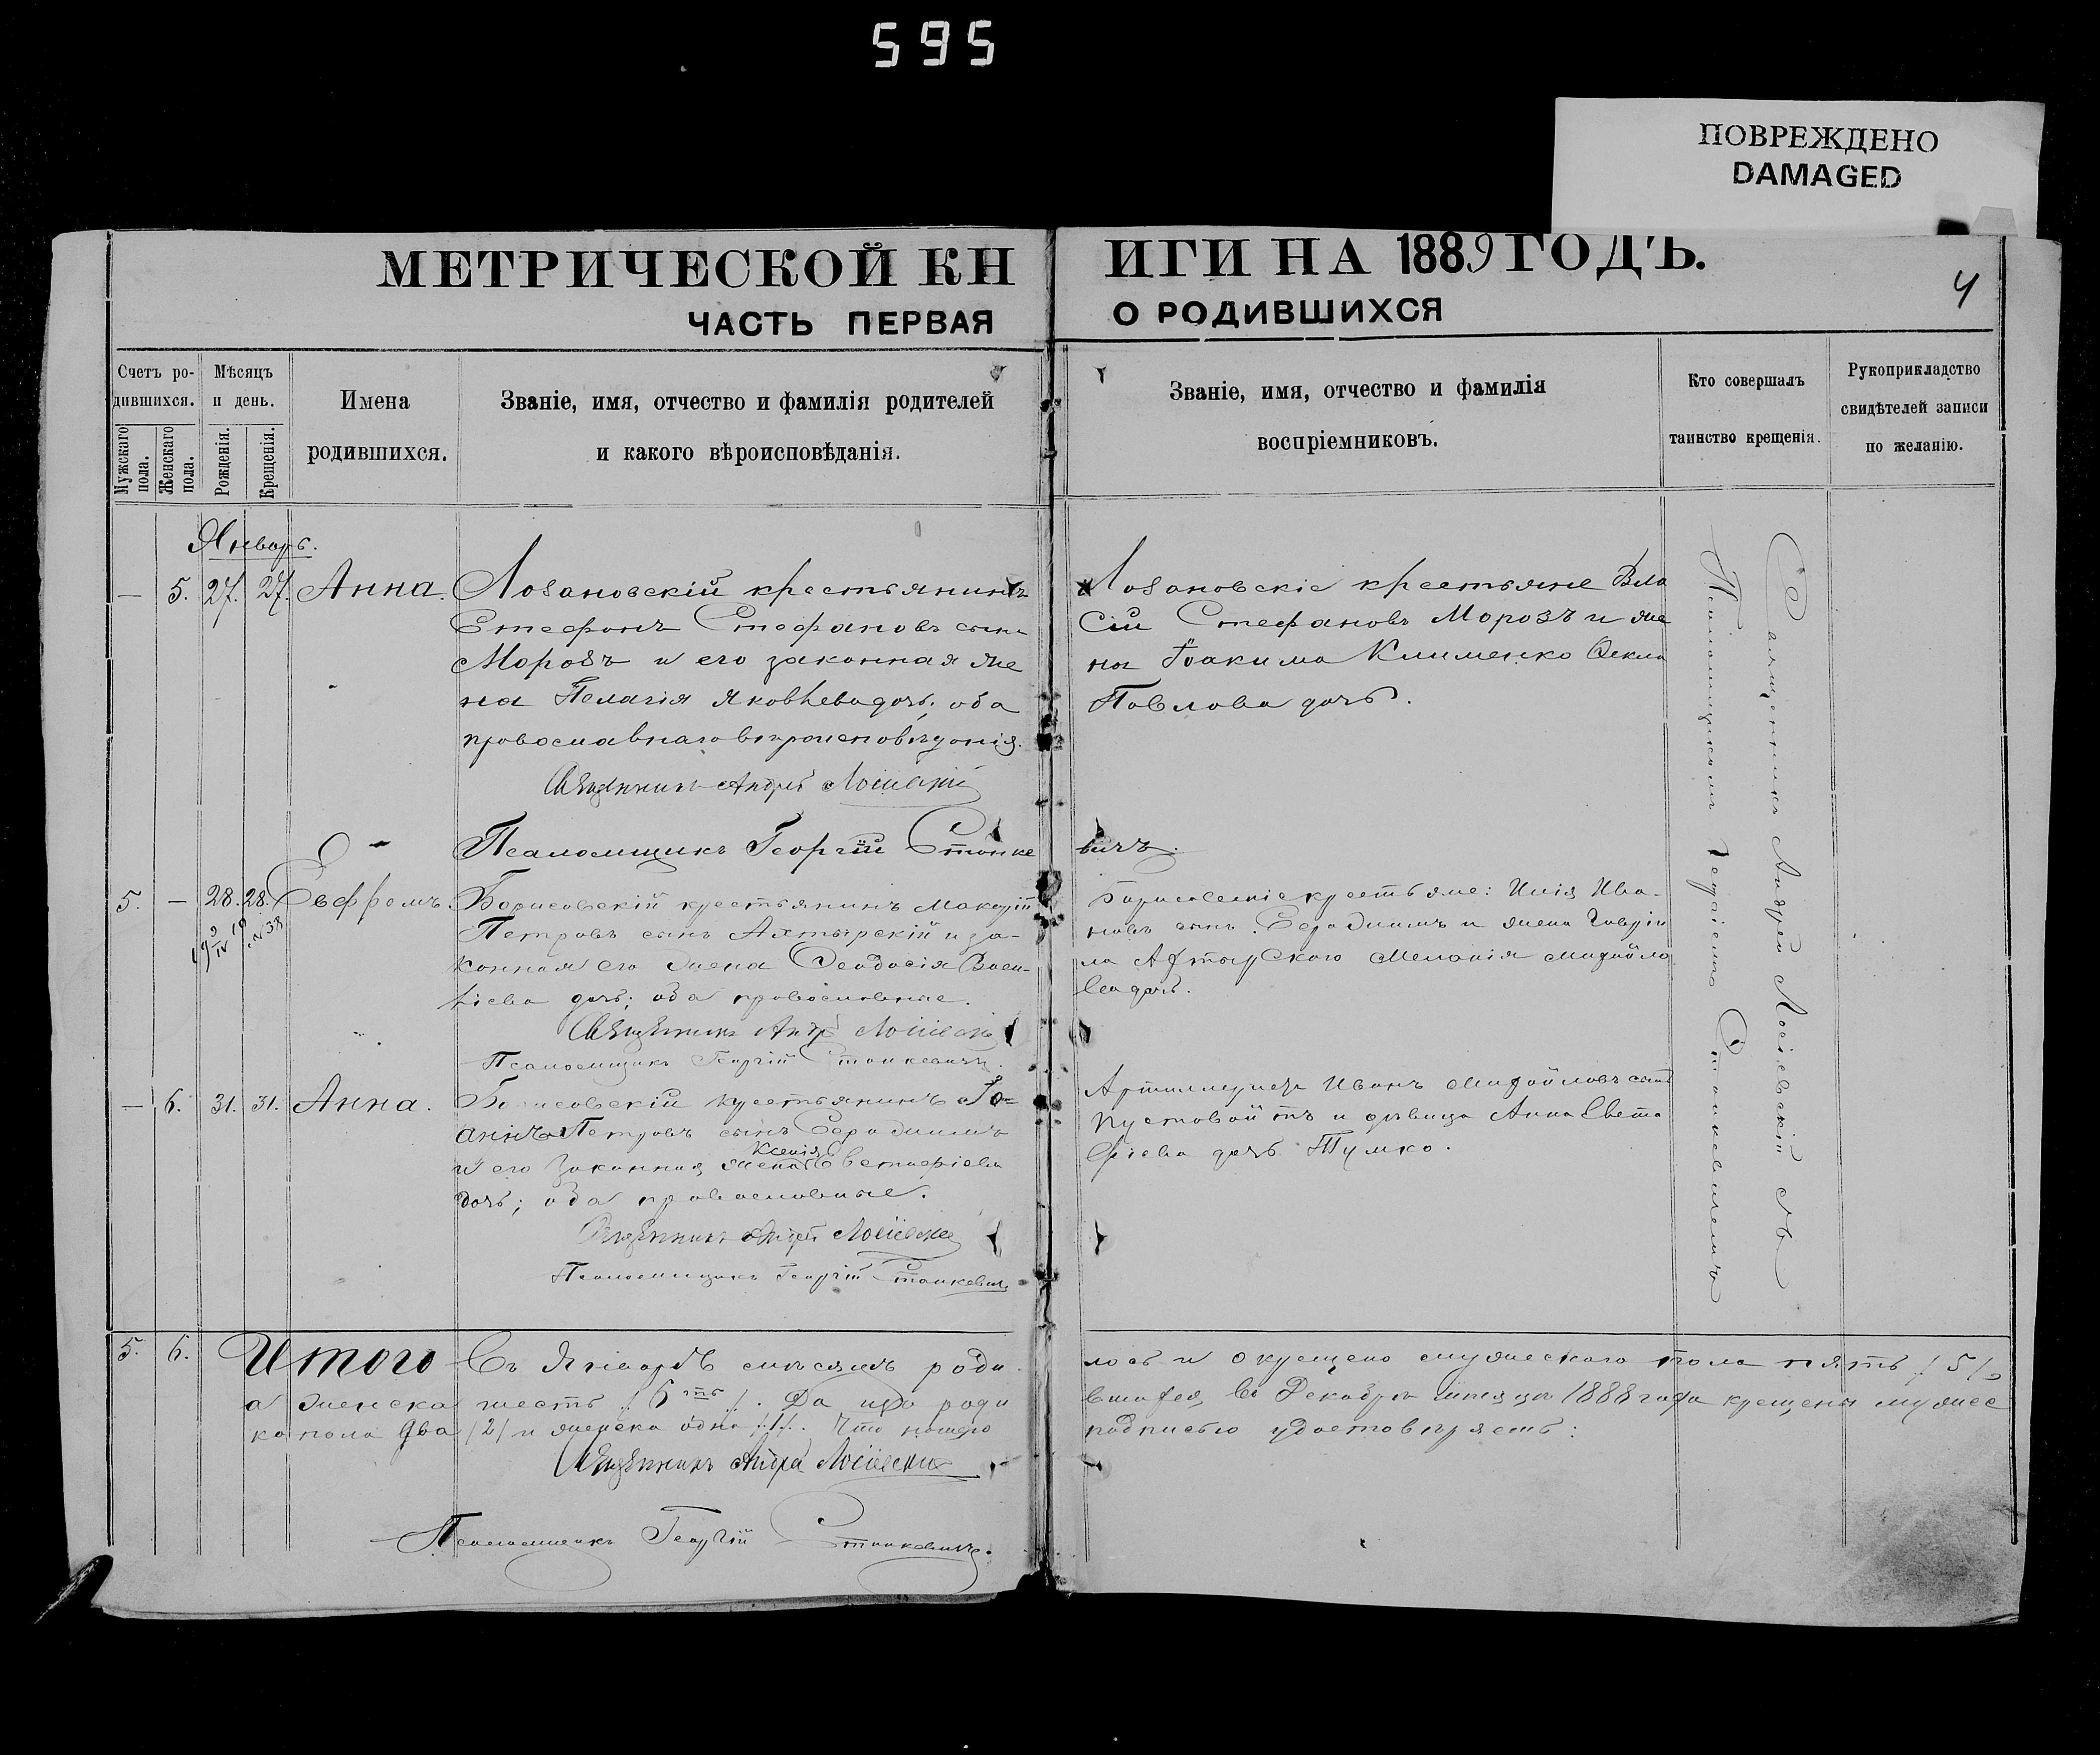 595
ПОВРЕЖДЕНО
DAMAGED
МЕТРИЧЕСКОЙ КНИГИ НА 1889 ГОДЪ.
4
ЧАСТЬ ПЕРВАЯ О РОДИВШИХСЯ
Счетъ родившихся.
Мужскаго пола.
Женскаго пола.
Мѣсяцъ и день.
Рожденія.
Крещенія.
Имена родившихся.
Званіе, имя, отчество и фамилія родителей
и какого вѣроисповѣданія.
Званіе, имя, отчество и фамилія
воспріемниковъ.
Кто совершалъ
таинство крещенія.
Рукоприкладство
свидѣтелей записи
по желанію.
Январь.
— 5. 27. 27. Анна.
Лозановскій крестьянинъ
Стефанъ Стефановъ сынъ
Морозъ и его законная же
на Пелагія Яковлева дочь; оба
православнаго вѣроисповѣданія.
Священникъ Андрей
Псаломщикъ Георгій Станке
вичъ.
Лозановскіе крестьяне Вла
сій Стефановъ Морозъ и же
на Іоакима Клименко Ѳекла
Павлова дочь.
5. — 28. 28.
№ 38
Борисовскій крестьянинъ Макарій
Петровъ сынъ Ахтырскій и за-
конная его жена Ѳеодосія Васи-
ліева дочь; оба православные.
Священникъ Андрей
Псаломщикъ Георгій Станкевичъ.
Борисовскіе крестьяне: Илія Ива-
новъ сынъ и жена Гавріи
ла Ахтырскаго Меланія Михайло
ва дочь.
— 6. 31. 31. Анна.
Борисовскій крестьянинъ Іо-
аннъ Петровъ сынъ
и его законная жена Ксенія Евстафіева
дочь; оба православные.
Священникъ Андрей
Псаломщикъ Георгій Станкевичъ
Артиллеристъ Иванъ Михайловъ сынъ
Пустовойтъ и дѣвица Анна Евста
фіева дочь Тумко.
Священникъ Андрей съ
Псаломщикомъ Георгіемъ Станкевичемъ
5. 6. Итого Въ Январѣ мѣсяцѣ роди
лось и окрещено мужескаго пола пять /5/,
а женска шесть /6ть/. Да изъ роди
вшихся въ Декабрѣ мѣсяцѣ 1888 года крещены мужес
ка пола два /2/ и женска одна /1/. Что нашею
подписью удостовѣряемъ:
Священникъ Андрей
Псаломщикъ Георгій Станкевичъ.